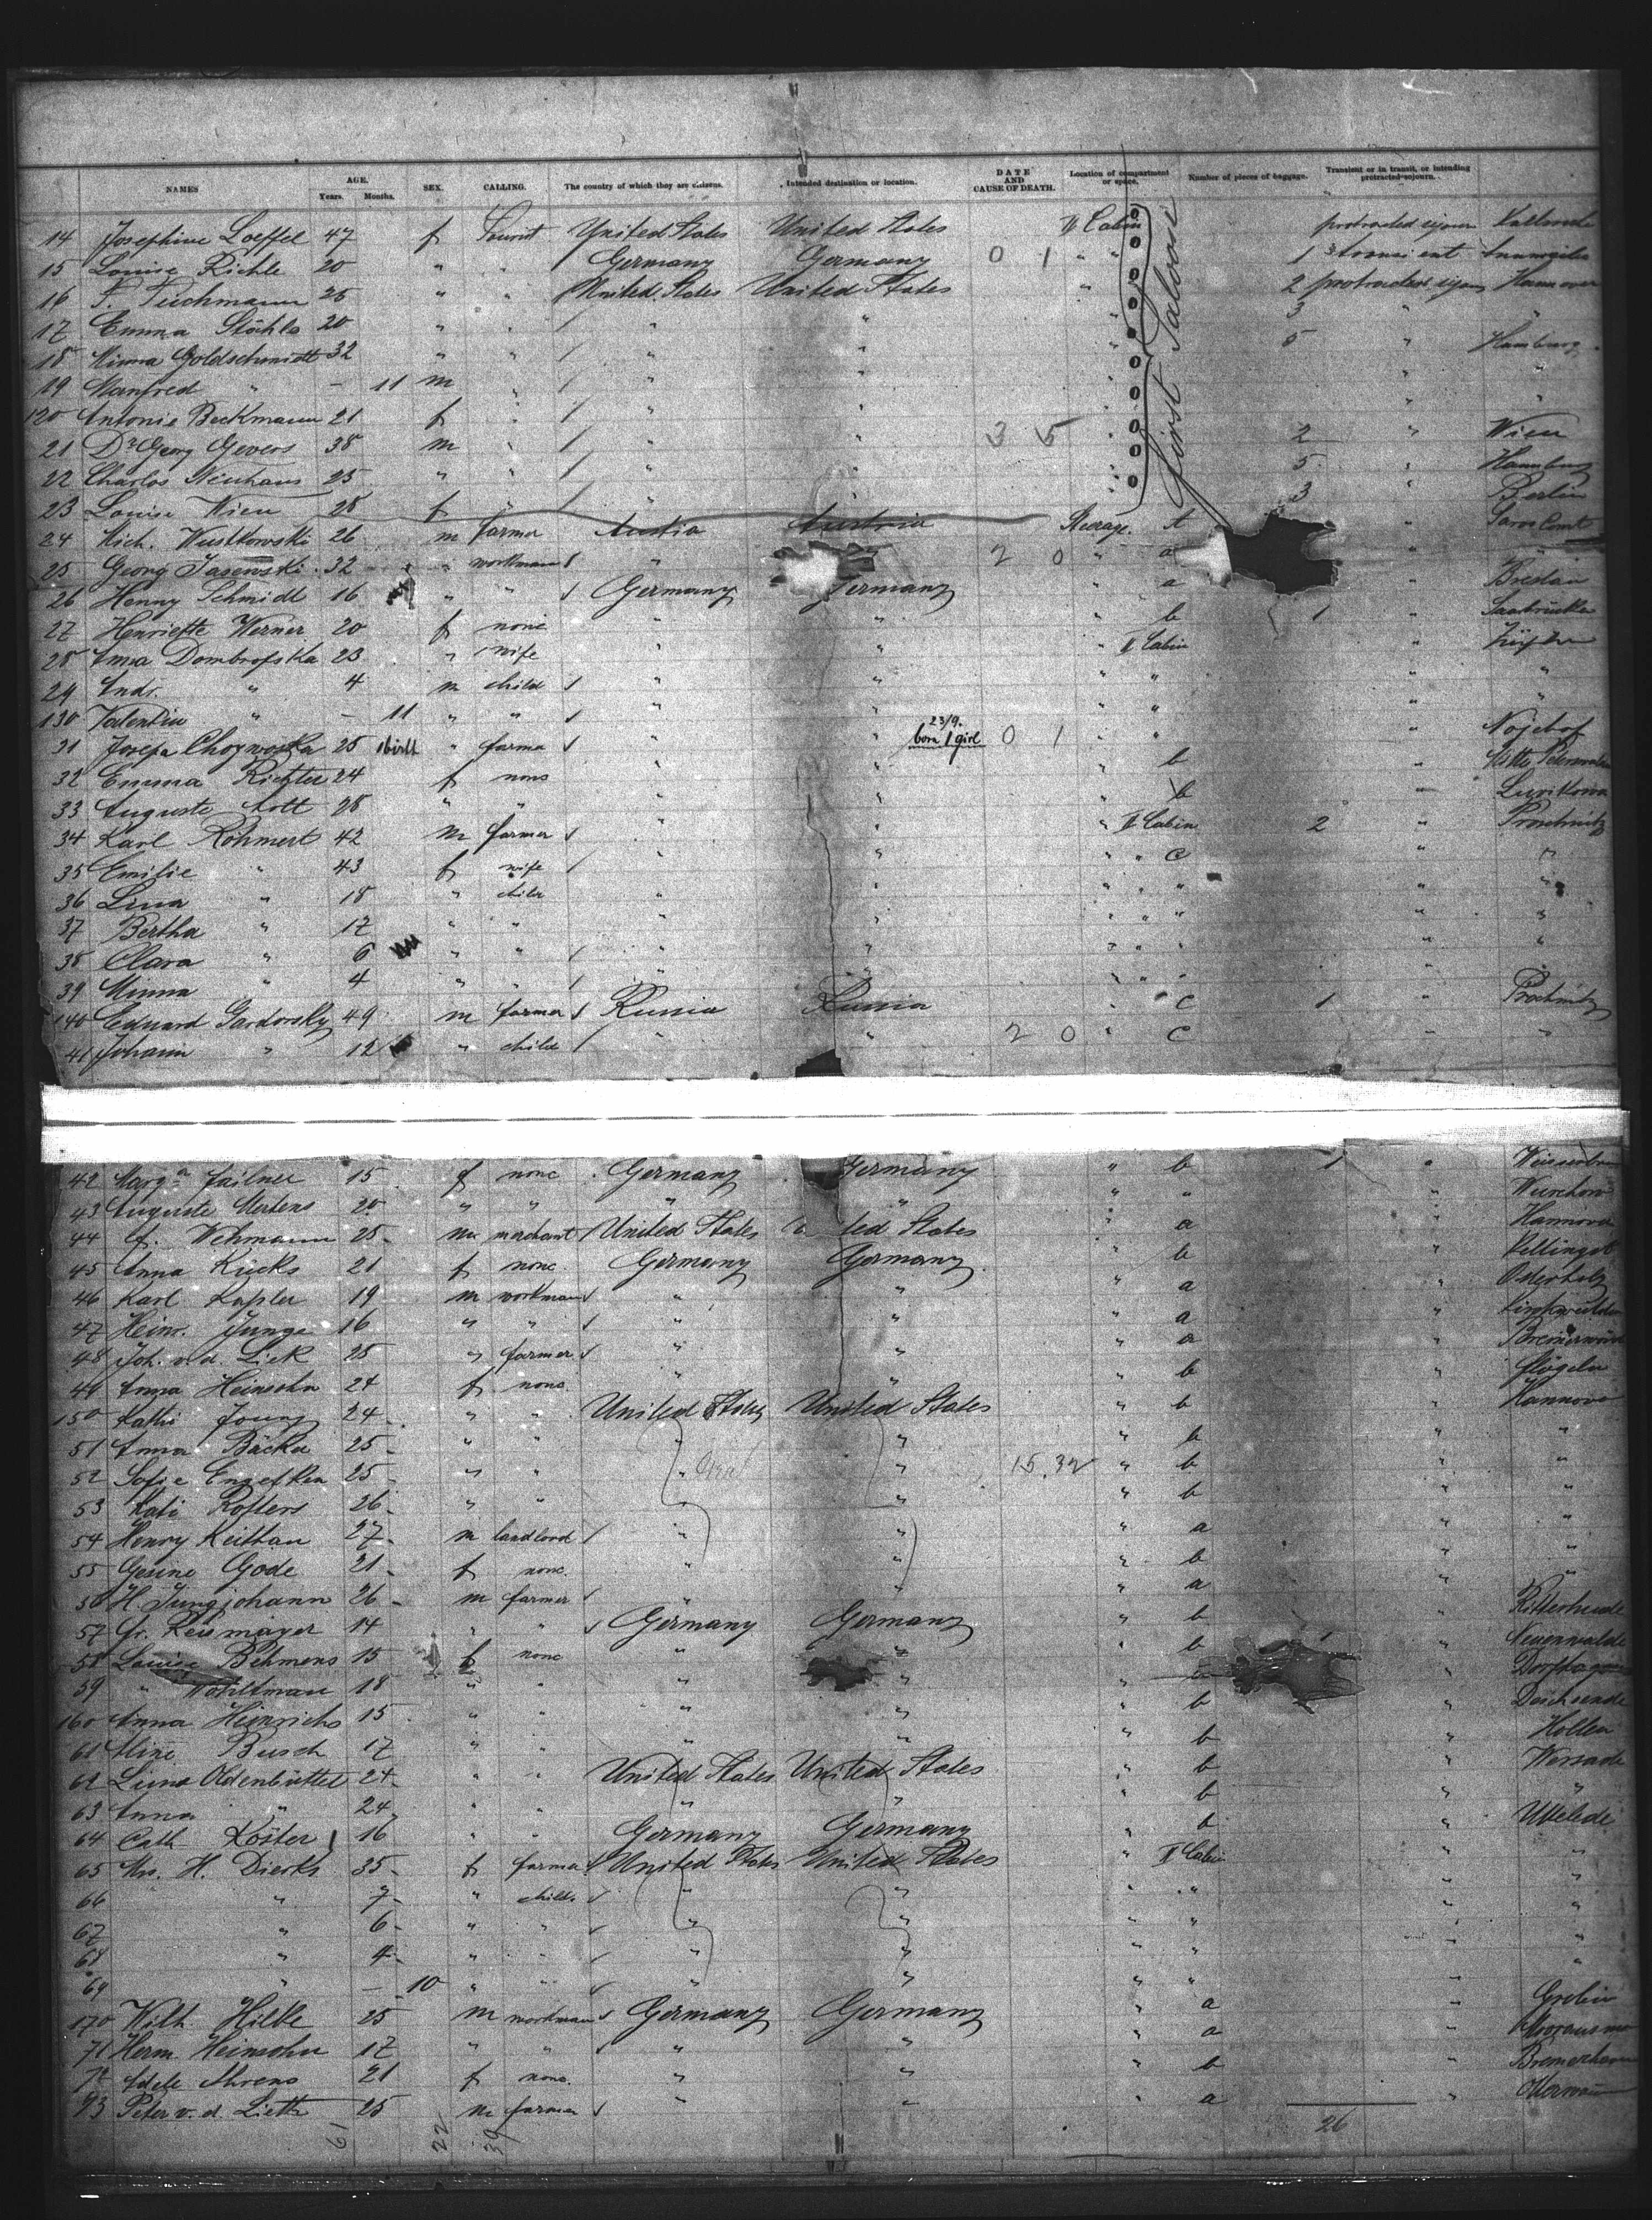 NAMES AGE. Years. Months. SEX. CALLING. The country of which they are citizens. Intended destination or location. DATE AND CAUSE OF DEATH. Location of compartment or space. Number of pieces of baggage. Transient or in transit, or intending protracted sojourn.
14 Josephine Loeffel 47 f Tourist United States United States II Cabin protracted sejour
15 Louise Richle 20 " " Germany Germany 0 1 " " 1 transient
16 P. Puchmann 25 " " United States United States " 2 protracted sejour Hannover
17 Emma Stöhle 20 " " " " " 3 " "
18 Minna Goldschmidt 32 " " " " " 5 " Hamburg.
19 Manfred " – 11 m " " " " " "
120 Antonie Beckmann 21 f " " " " " "
21 Dr Georg Gevers 38 m " " " 3 5 " 2 " Wien
22 Charles Neuhaus 25 " " " " " 5 " Hamburg
23 Louise Wien 28 f " " " " 3 " Berlin
First Saloon
24 Mich. Wustkowski 26 m farmer Austia Austria Steerage. A "
25 Georg Jasewski 32 " workman " 2 0 " a "
26 Henny Schmidt 16 " " Germany Germany " a " Breslau
27 Henriette Werner 20 f none " " " b 1 " Saarbrücken
28 Anna Dombrofska 23 " wife " " " II Cabin "
29 Andr. " 4 m child " " " " " "
130 Valentin " – 11 " " " " " " "
31 Josefa Chozwoska 25 " farmer " " 23/9. born 1 girl 0 1 " " "
32 Emma Richter 24 f none " " " b "
33 Auguste Arlt 28 " " " " " b "
34 Karl Röhmert 42 m farmer " " " II Cabin 2 "
35 Emilie " 43 f wife " " " " C " "
36 Lina " 18 " child " " " " " "
37 Bertha " 17 " " " " " " " " "
38 Clara " 6 " " " " " " " " "
39 Minna " 4 " " " " " " " "
140 Eduard Gardorsky 49 m farmer Russia Russia " C 1 "
41 Johann " 12 " child " " 2 0 " C " "
42 Marga Failner 15 f none Germany Germany " b 1 "
43 Auguste Mertens 20 " " " " " " "
44 C. Wehmann 25 m merchant United States ted States " a " Hannover
45 Anna Kücks 21 f none Germany Germany " b "
46 Karl Kapler 19 m workman " " " a " Osterholz
47 Heinr. Junge 16 " " " " " a "
48 Joh. v. d. Lieth 25 " farmer " " " a "
49 Anna Heinsohn 24 f none " " " b " Flögeln
150 Kathi Joung 24 " " United States United States " b " Hannover
51 Anna Bäcker 25 " " " " " b " "
52 Sofie Engelken 25 " " " " 15.32 " b " "
53 Kati Rofters 26 " " " " " b " "
54 Henry Keithan 27 m landlord " " " a " "
55 Gesine Gode 21 f none " " " b " "
56 H Jungjohann 26 m farmer " " " a " "
57 Fr. Reismayer 14 " " Germany Germany " b 1 " Ritterhude
58 Louise Behmens 15 f none " " " b " Neuenwalde
59 " Wohltman 18 " " " " " b " Dorfhagen
160 Anna Heinrichs 15 " " " " " b "
61 Aline Busch 17 " " " " " b " Hollen
62 Lina Oldenbüttel 24 " " United States United States " b " Wersade
63 Anna " 24 " " " " " b " "
64 Cath Köster 16 " " Germany Germany " b " Uthlede
65 Mrs. H. Dierks 35 f farmer United States United States " II Cabin " "
66 " 7 " child. " " " " " "
67 " 6 " " " " " " " "
68 " 4 " " " " " " " "
69 " – 10 " " " " " " "
170 Wilh Hilke 25 m workman Germany Germany " a "
71 Herm Heinsohn 17 " " " " " a "
72 Adele Ahrens 21 f none. " " " b " Bremerhaven
73 Peter v. d. Lieth 25 m farmer " " " a "
61 22 39 26